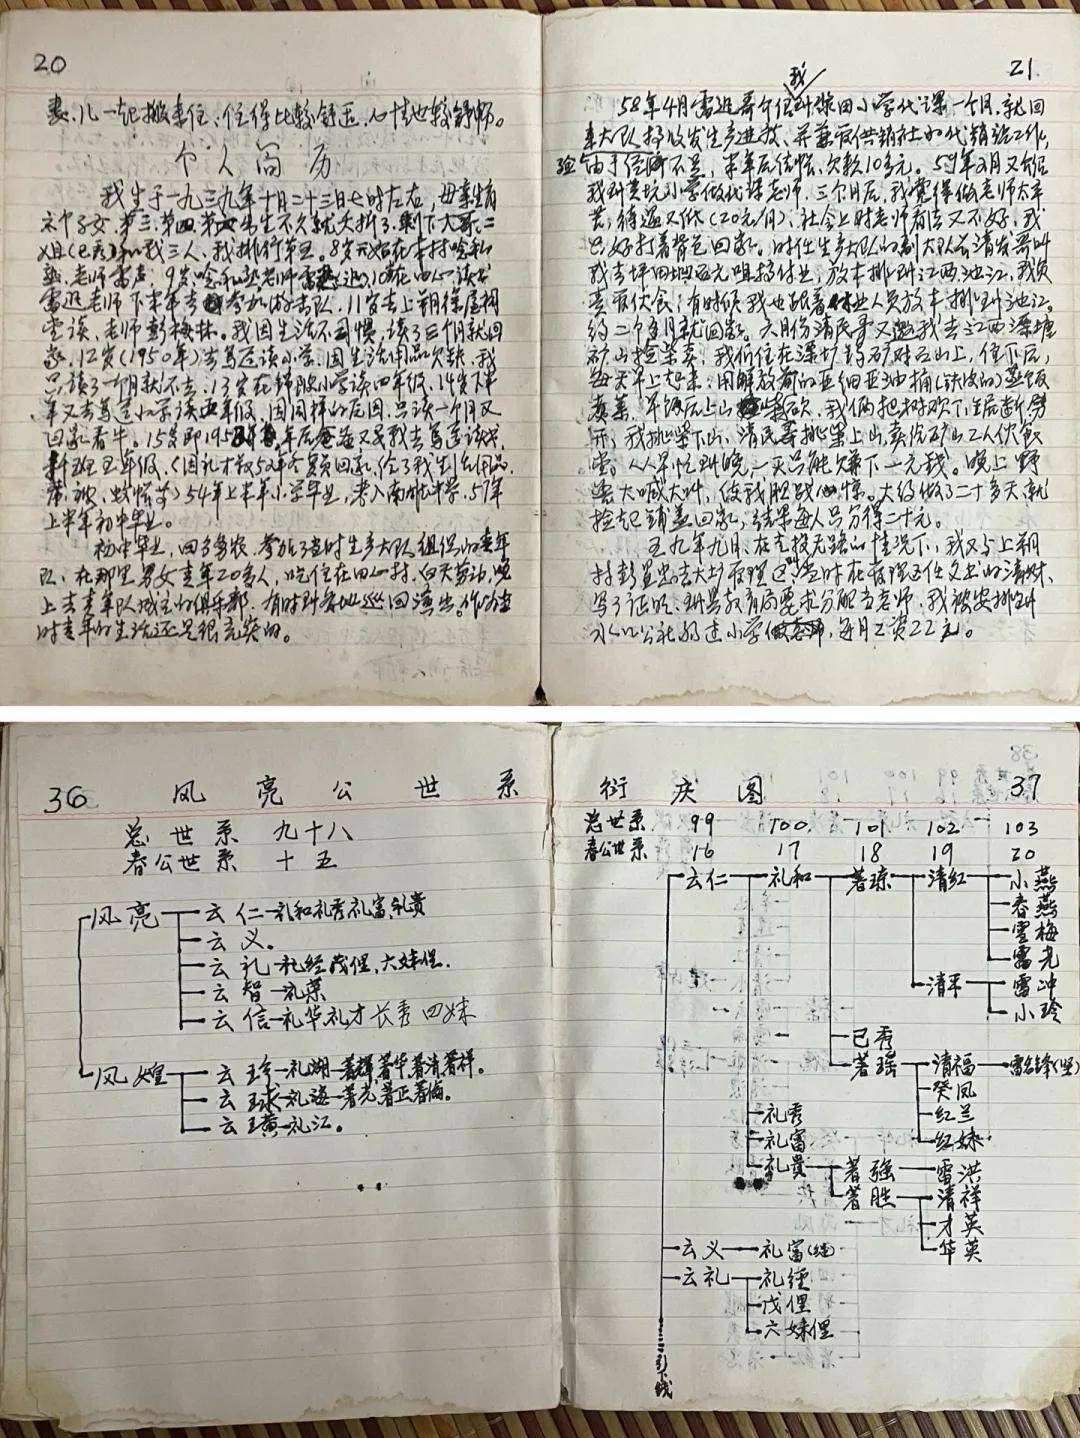 20
妻、儿一起搬来住,住得比较舒适,心情也较舒畅。
个人简历
我生于一九三九年十月二十三日七时左右,母亲生育
六个子女,第三、第四、第 出生不久就夭折了,剩下大哥、二
姐(已秀)和我三人,我排行第五。8岁开始在本村 私
塾,老师雷声,9岁 私塾老师雷 10 在 读书
雷迅老师下半年去 参加 队,11岁去上朔 屋祠
堂读,老师彭梅林。我因生活不习惯,读了三个月就回
家,12岁(1950年)去笃莲读小学,因生活用品欠缺,我
只读了一个月就不去,13岁在锦陂小学读四年级,14岁下半
年又去笃莲小学读 年级,因同样的原因,只读一个月又
回家看牛。15岁即195 年底 又 我去笃莲读书,
班五年级,(因礼才叔52年冬 回家,给了我生活用品
席、被、蚊帐等)54年上半年小学毕业,考入南雄中学,57年
上半年初中毕业。
初中毕业,回乡务农,参加了当时生产大队组织的青年
队,在那里男女青年20多人,吃住在 村,白天劳动,晚
上去青年队城 的俱乐部,有时到各地巡回演出。作为当
时青年的生活还是很充实的。
21
我
58年4月雷迅哥介绍到 田小学代课一个月,就回
来大队 收发生产进 ,并兼管供销社的代销 工作,
由于经验不足,半年后结帐,欠款10多元。59年2月又
我到 坑小学做代课老师,三个月后,我觉得做老师太辛
苦,待遇又低(20元/月),社会上对老师看法又不好,我
只好打着背包回家。时任生产大队的副大队长清发哥叫
我去坪田坳 元咀 作业,放木排到江西池江,我负
责管伙食,有时候我也跟着作业人员放木排到池江。
约二个多月就回家。六月份清民哥又邀我去江西漂塘
矿山捡柴卖,我们住在漂塘 矿对面山上,住下后,
每天早上起来,用解放前的亚细亚油桶(铁皮的)蒸饭
煮菜,早饭后上山 柴砍,我俩把树砍下,锯断劈
开,我挑柴下山,清民哥挑柴上山,卖给矿山工人伙食
堂。从早忙到晚,一天只能赚下一元钱。晚上野
兽大喊大叫,使我胆战心惊。大约做了二十多天就
捡起铺盖回家,结果每人只分得二十元。
五九年九月,在走投无路的情况下,我又与上朔
村彭昌忠去大 管理区叫当时在管理区任文书的清 ,
写了证明,到县教育局要求分配当老师,我被安排到
水口公社弱过小学做老师,每月工资22元。
36 凤亮公世系
总世系 九十八
春公世系 十五
凤亮 云仁—礼和礼秀礼富,礼贵
云义。
云礼—礼经茂俚,六妹俚.
云智—礼菜
云信—礼华礼才长秀四妹
凤煌 云珍—礼湖—著辉,著华,著清,著祥。
云球—礼海—著光,著正著伦。
云璜—礼江。
衍庆图 37
总世系 99 100 101 102 103
春公世系 16 17 18 19 20
云仁 礼和 著琼 清红 小燕
春燕
雪梅
雷光
清平 雷冲
小玲
已秀
著瑶 清福 雷名锋(坚)
癸凤
红兰
红妹
礼秀
礼富
礼贵 著强 雷洪
著胜 清祥
才英
华英
云义 礼富(继)
云礼 礼经
戊俚
六妹俚
引下线